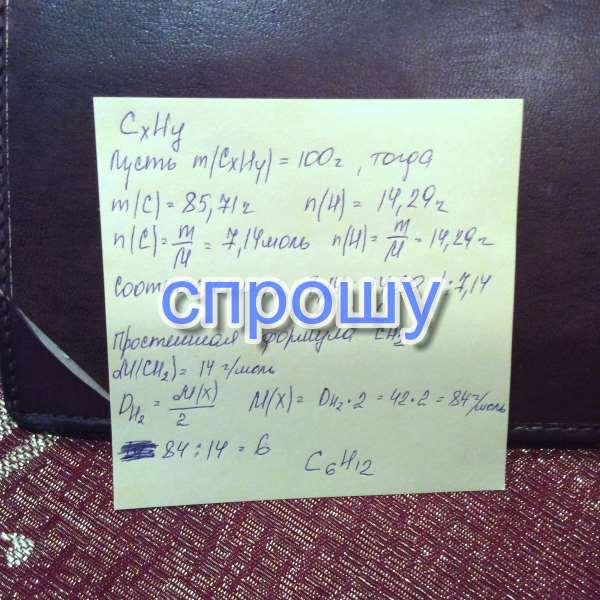 CxHy
Пусть m(CxHy) = 100г, тогда
m(C) = 85,71г n(H) = 14,29г
n(C) = m/M = 7,14моль n(H) = m/M = 14,29г
7,14
спрошу
Простейшая формула CH2
M(CH2) = 14 г/моль
DH2 = M(X)/2 M(X) = DH2 · 2 = 42 · 2 = 84г/моль
84 : 14 = 6
C6H12